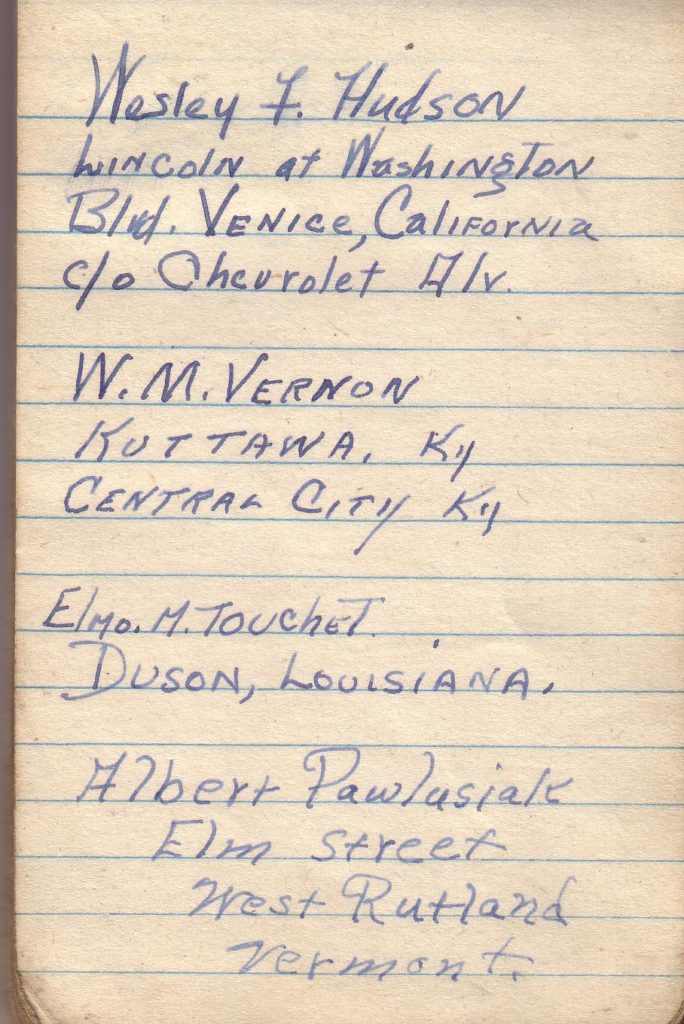 Wesley F. Hudson
Lincoln at Washington
Blvd. Venice, California
c/o Chevrolet Alv.
W. M. Vernon
Kuttawa, Ky
Central City Ky
Elmo. M. Touchet.
Duson, Louisiana.
Albert Pawlusiak
Elm Street
West Rutland
Vermont.